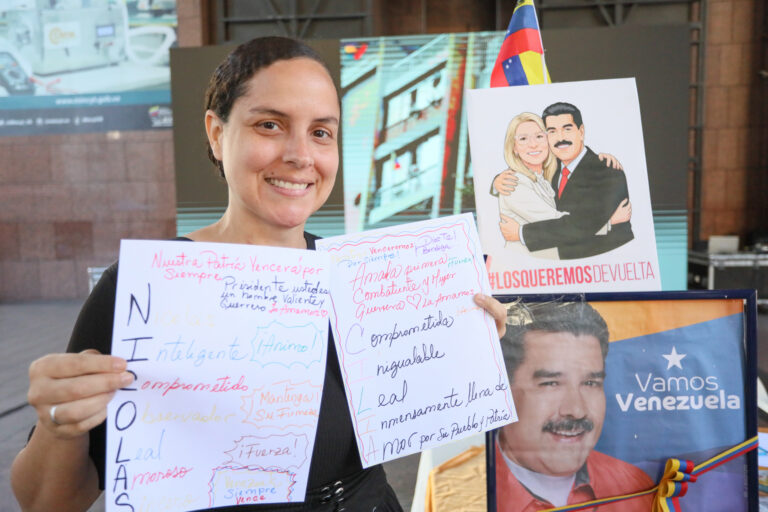 Nuestra Patria Vencerá por
Siempre
Presidente usted es
un hombre Valiente y
Guerrero Lo Amamos
N
Inteligente
¡Animo!
Comprometido
Observador
Mantenga
Su Firmeza
Leal
Amoroso
¡Fuerza!
S
Venezuela
Siempre
Vence
Venceremos
por siempre!
Dios la
Bendiga
Amada primera
Combatiente y Mujer
Guerrera La Amamos
¡Fuerza!
Comprometida
Inigualable
Leal
Inmensamente llena de
Amor por Su Pueblo y Patria
#LOSQUEREMOSDEVUELTA
Vamos
Venezuela